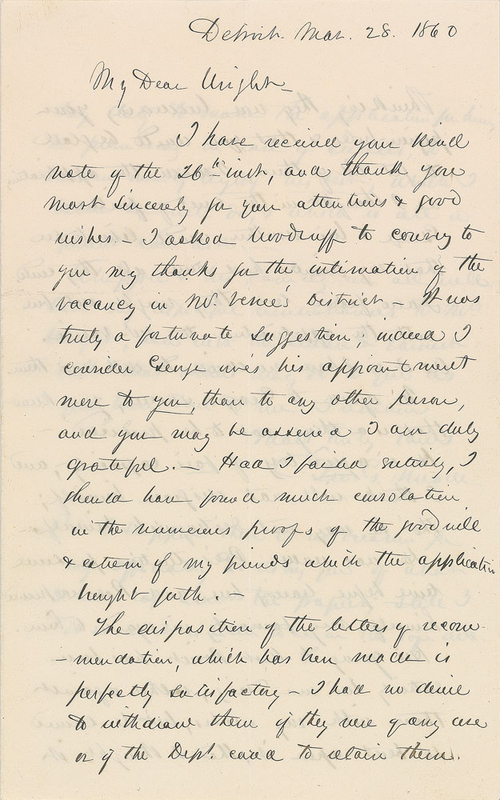 Detroit. Mar. 28. 1860
My Dear Wright—
I have received your kind
note of the 26th inst, and thank you
most sincerely for your attentions & good
wishes — I asked Woodruff to convey to
you my thanks for the intimation of the
vacancy in Mr. District — It was
truly a fortunate suggestion; indeed I
consider George owes his appointment
more to you, than to any other person,
and you may be assured I am duly
grateful. — Had I failed entirely, I
should have found much consolation
in the numerous proofs of the good will
& esteem of my friends which the application
brought forth. —
The disposition of the letters of recom-
-mendation, which has been made is
perfectly satisfactory — I had no desire
to withdraw them if they were of any use
or if the Dept. cared to retain them.